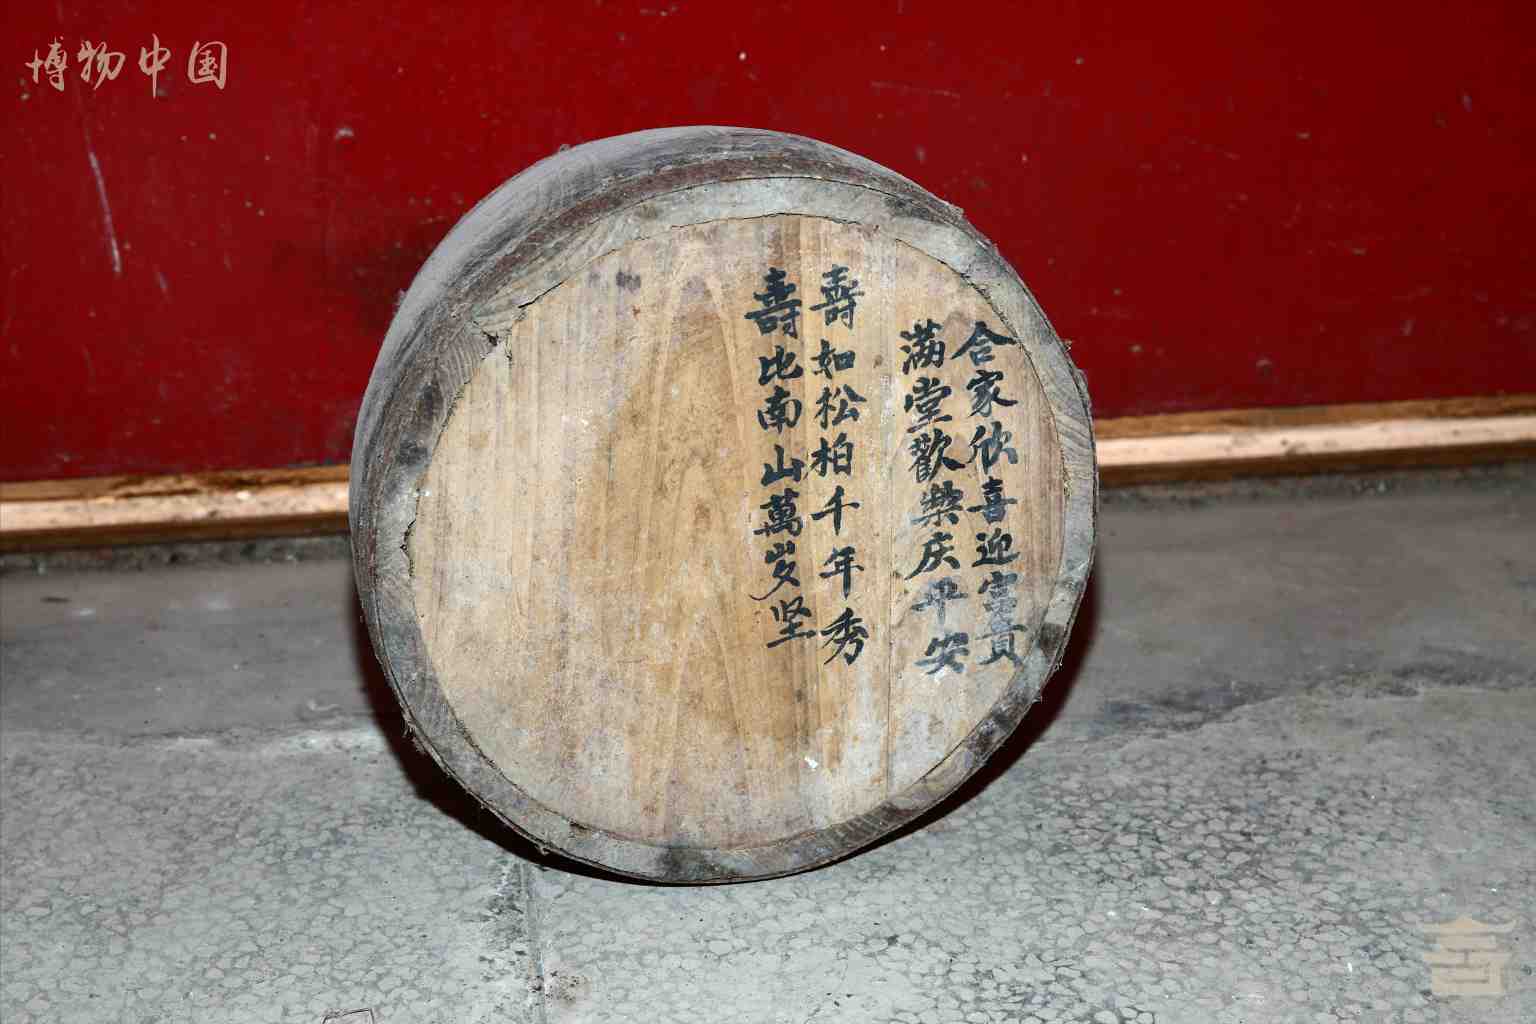 博物中国
合家欣喜迎富貴
滿堂歡樂庆平安
壽如松柏千年秀
壽比南山萬岁坚